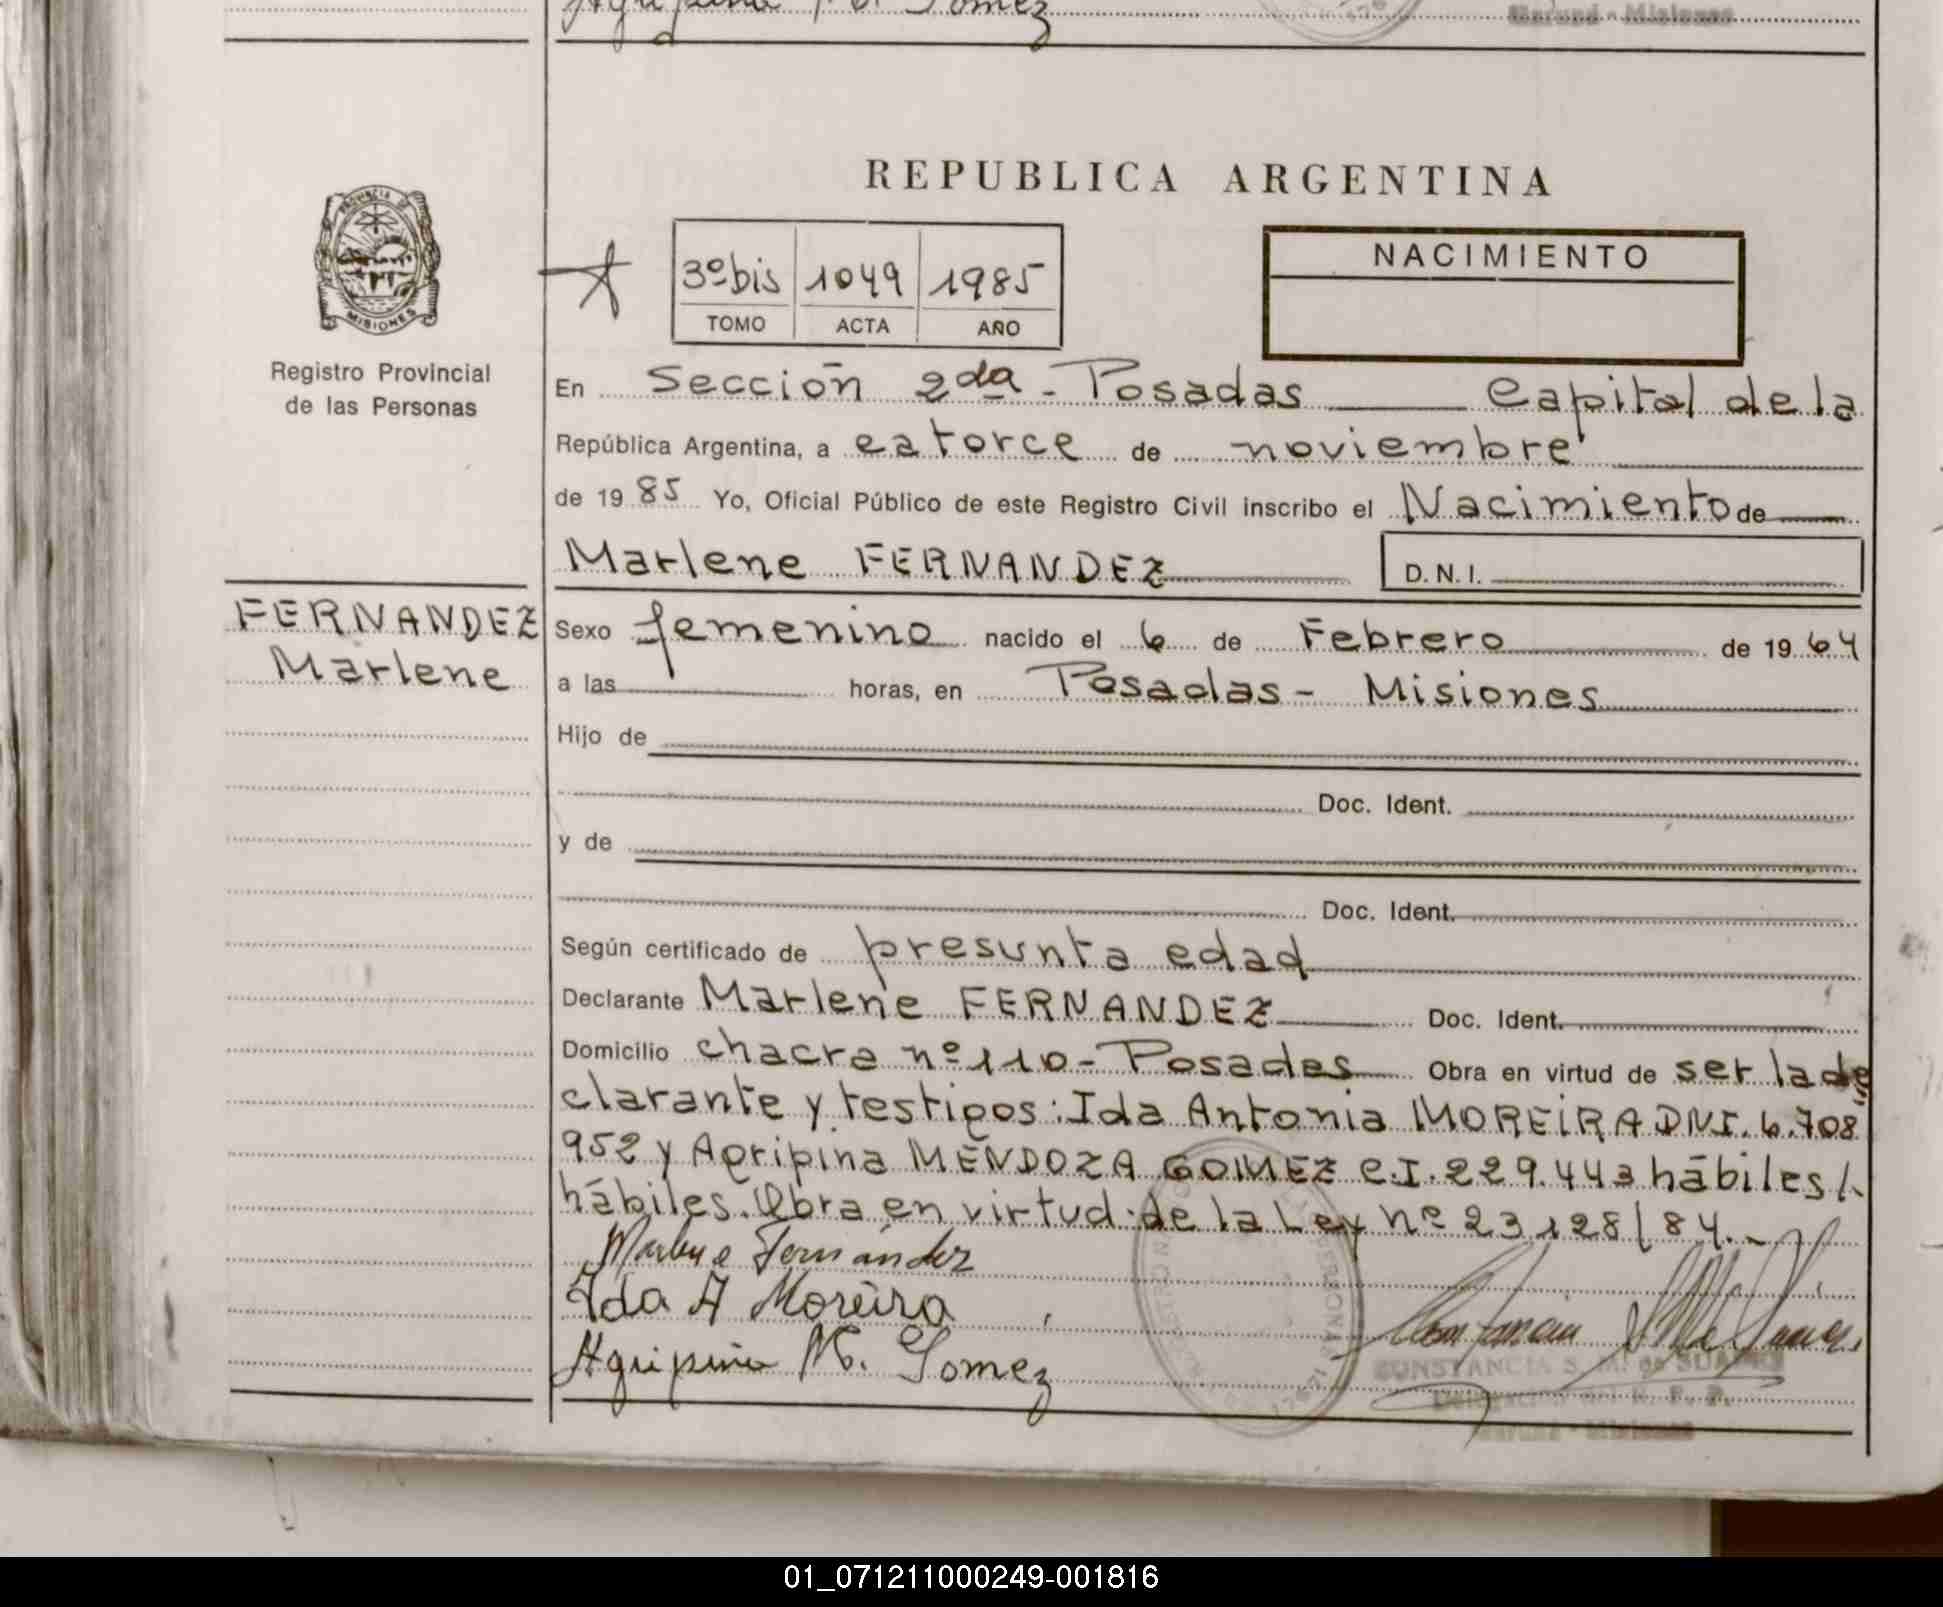 Agripina M. Gomez
Misiones
REPUBLICA ARGENTINA
PROVINCIA DE
MISIONES
Registro Provincial
de las Personas
3º bis 1049 1985
TOMO ACTA AÑO
NACIMIENTO
En Sección 2da - Posadas Capital de la
República Argentina, a catorce de noviembre
de 1985 Yo, Oficial Público de este Registro Civil inscribo el Nacimiento de
Marlene FERNANDEZ D.N.I.
FERNANDEZ
Marlene
Sexo femenino nacido el 6 de Febrero de 1964
a las horas, en Posadas - Misiones
Hijo de
Doc. Ident.
y de
Doc. Ident.
Según certificado de presunta edad
Declarante Marlene FERNANDEZ Doc. Ident.
Domicilio chacra nº 110 - Posadas Obra en virtud de ser la de
clarante y testigos: Ida Antonia MOREIRA DNI. 6.708
952 y Agripina MENDOZA GOMEZ C.I. 229.443 hábiles/.
hábiles. Obra en virtud de la Ley nº 23128/84.-
Marlene Fernandez
Ida A Moreira
Agripina M. Gomez
CONSTANCIA S. M. de SUAREZ
R. P. P.
Misiones
01_071211000249-001816